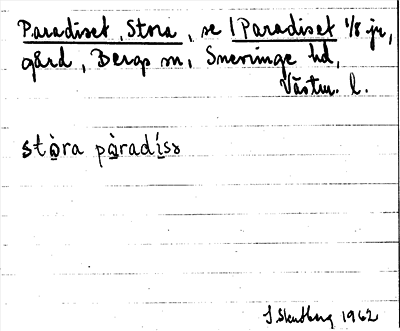 Paradiset, Stora, se 1 Paradiset 1/8 jr,
gård, Bergs sn, Snevringe hd,
Västm. l.
stòra pàradíså
1962